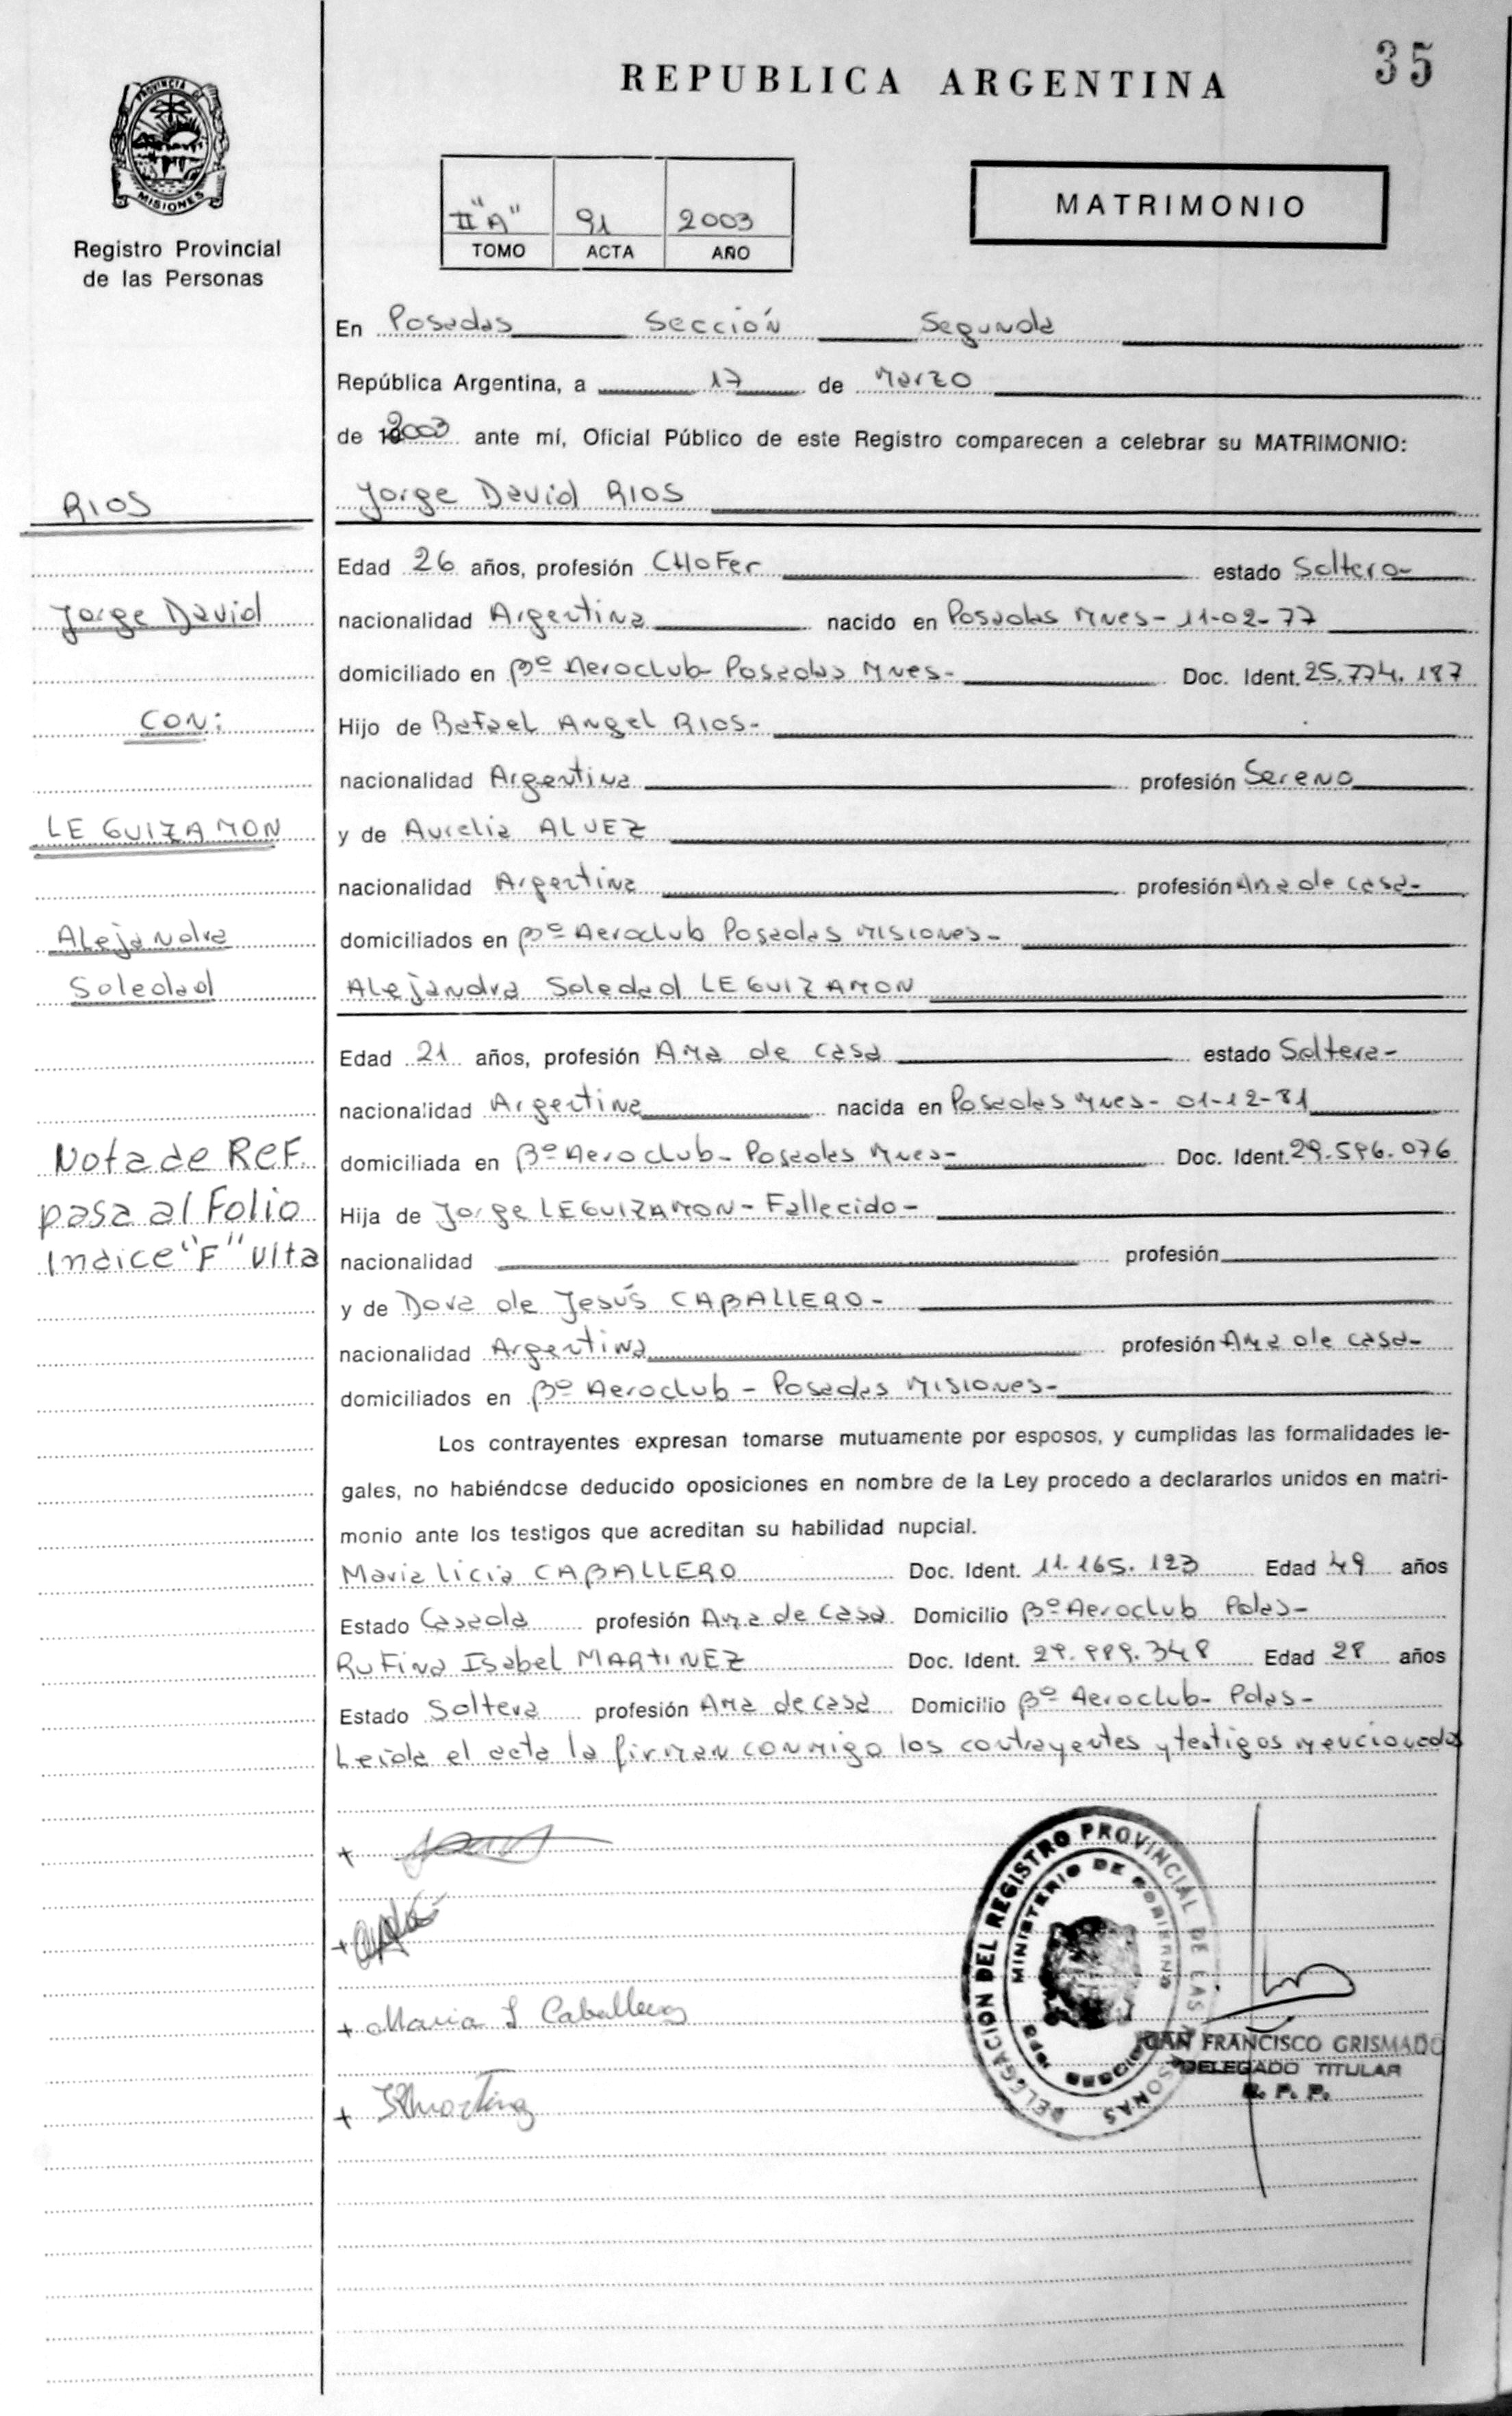 35
REPUBLICA ARGENTINA
PROVINCIA DE
MISIONES
Registro Provincial
de las Personas
II "A" 91 2003
TOMO ACTA AÑO
MATRIMONIO
En Posadas Sección Segunda
República Argentina, a 17 de Marzo
de 2003 ante mí, Oficial Público de este Registro comparecen a celebrar su MATRIMONIO:
RIOS
Jorge David RIOS
Edad 26 años, profesión CHOFer estado Soltero-
Jorge David
nacionalidad Argentina nacido en Posadas Mnes- 11-02-77
domiciliado en Bº Aeroclub- Posadas Mnes- Doc. Ident. 25.774.187
CON:
Hijo de Rafael Angel RIOS-
nacionalidad Argentina profesión Sereno
LEGUIZAMON
y de Aurelia ALVEZ
nacionalidad Argentina profesión Ama de casa-
Alejandra
domiciliados en Bº Aeroclub Posadas Misiones-
Soledad
Alejandra Soledad LEGUIZAMON
Edad 21 años, profesión Ama de casa estado Soltera-
nacionalidad Argentina nacida en Posadas Mnes- 01-12-81
Nota de REF.
domiciliada en Bº Aeroclub- Posadas Mnes- Doc. Ident. 29.596.076
pasa al Folio
Hija de Jorge LEGUIZAMON- Fallecido-
Indice "F" Vlta
nacionalidad profesión
y de Dora de Jesús CABALLERO-
nacionalidad Argentina profesión Ama de casa-
domiciliados en Bº Aeroclub - Posadas Misiones-
Los contrayentes expresan tomarse mutuamente por esposos, y cumplidas las formalidades le-
gales, no habiéndose deducido oposiciones en nombre de la Ley procedo a declararlos unidos en matri-
monio ante los testigos que acreditan su habilidad nupcial.
Maria licia CABALLERO Doc. Ident. 11.165.123 Edad 49 años
Estado Casada profesión Ama de Casa Domicilio Bº Aeroclub Pdas-
Rufina Isabel MARTINEZ Doc. Ident. Edad 28 años
Estado Soltera profesión Ama de casa Domicilio Bº Aeroclub- Pdas-
Leida el acta la firman conmigo los contrayentes y testigos mencionados
+
+
+ Maria L Caballero
+
DELEGACION DEL REGISTRO PROVINCIAL DE LAS PERSONAS
MINISTERIO DE GOBIERNO
FRANCISCO GRISMADO
DELEGADO TITULAR
R. P. P.